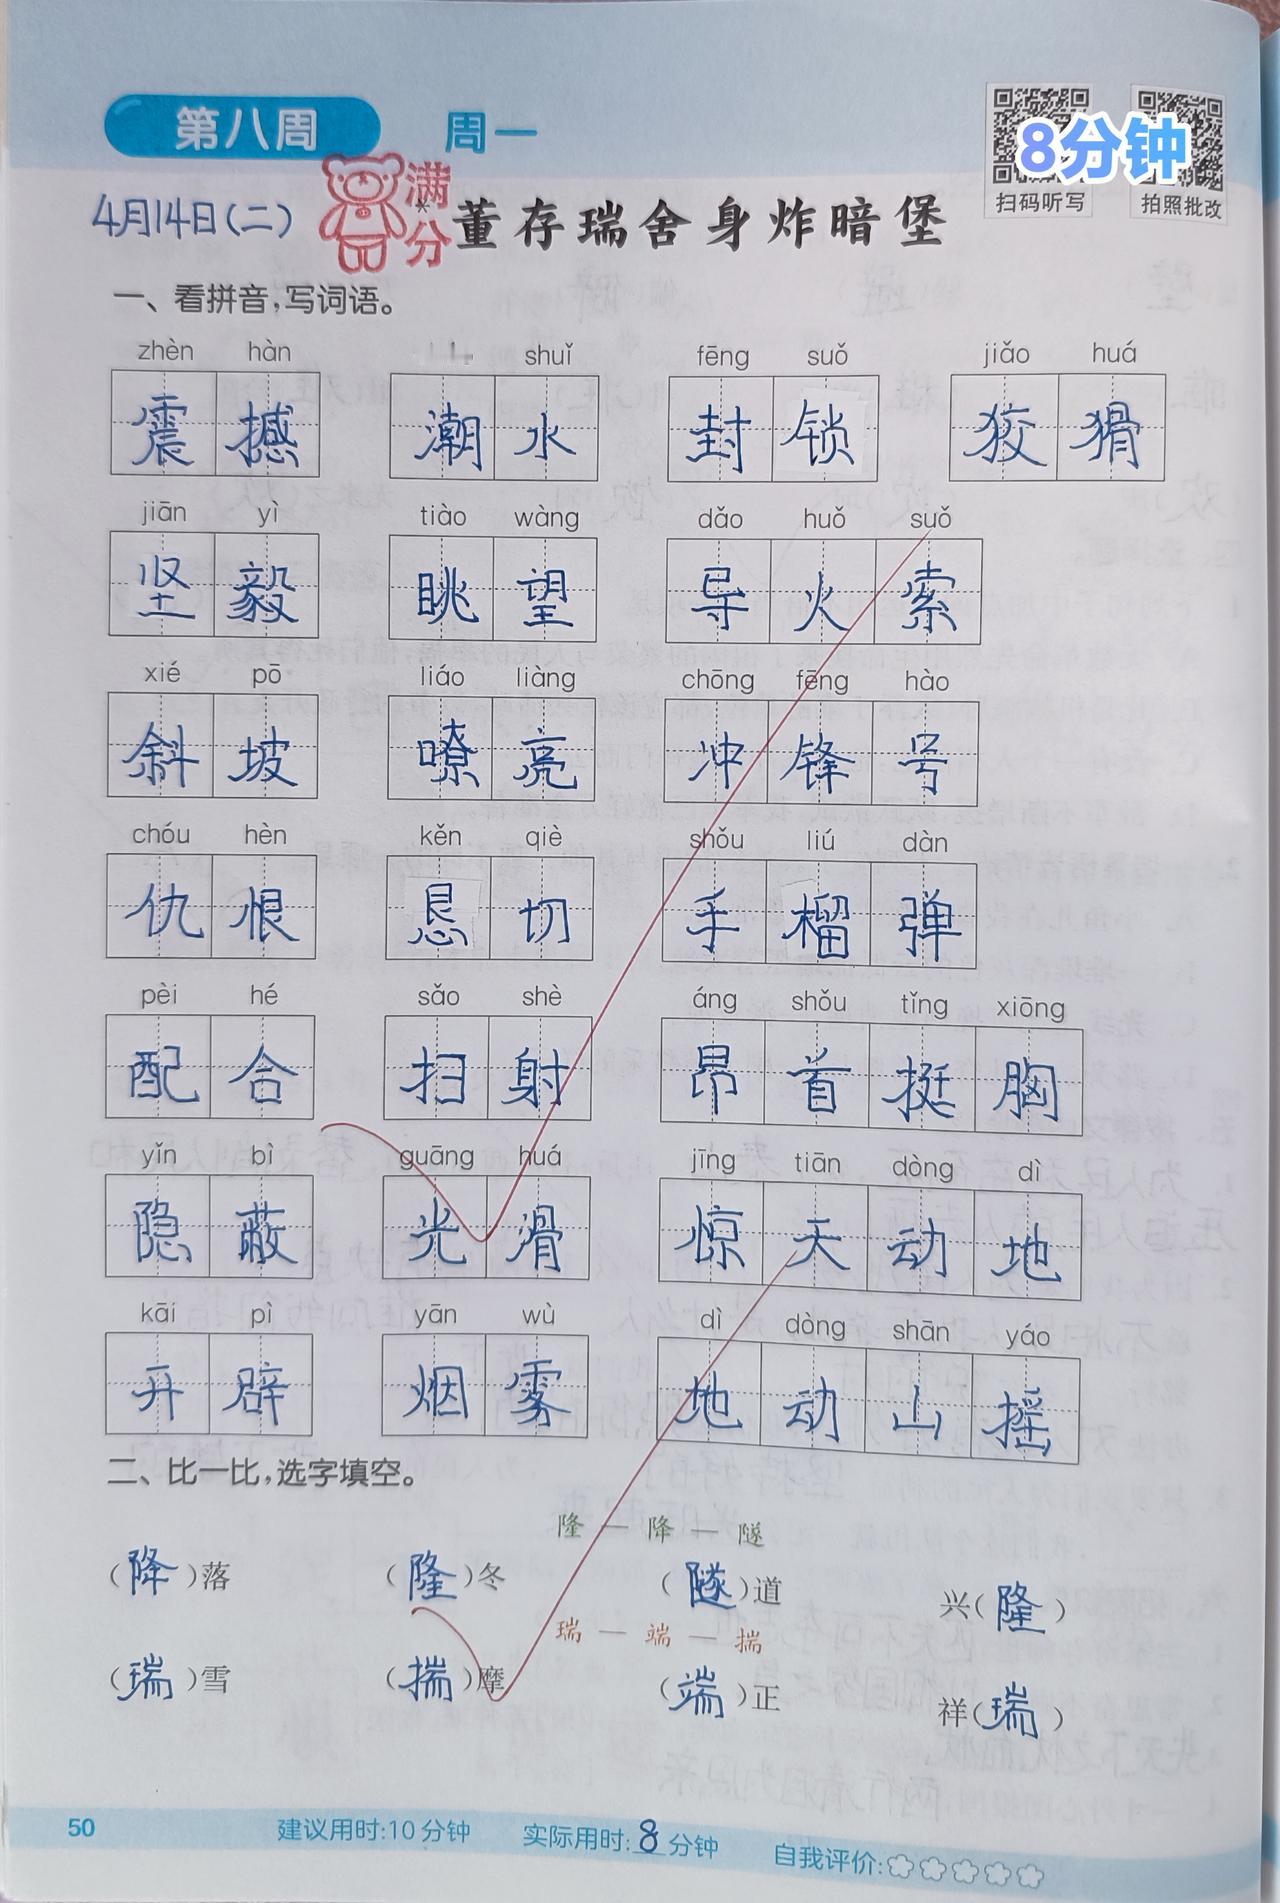 第八周 周一
8分钟
扫码听写 拍照批改
4月14日(二) 满分 董存瑞舍身炸暗堡
一、看拼音,写词语。
zhèn hàn shuǐ fēng suǒ jiǎo huá
震撼 潮水 封锁 狡猾
jiān yì tiào wàng dǎo huǒ suǒ
坚毅 眺望 导火索
xié pō liáo liàng chōng fēng hào
斜坡 嘹亮 冲锋号
chóu hèn kěn qiè shǒu liú dàn
仇恨 恳切 手榴弹
pèi hé sǎo shè áng shǒu tǐng xiōng
配合 扫射 昂首挺胸
yǐn bì guāng huá jīng tiān dòng dì
隐蔽 光滑 惊天动地
kāi pì yān wù dì dòng shān yáo
开辟 烟雾 地动山摇
二、比一比,选字填空。
隆—降—隧
(降)落 (隆)冬 (隧)道 兴(隆)
瑞—端—揣
(瑞)雪 (揣)摩 (端)正 祥(瑞)
50 建议用时:10分钟 实际用时:8分钟 自我评价: